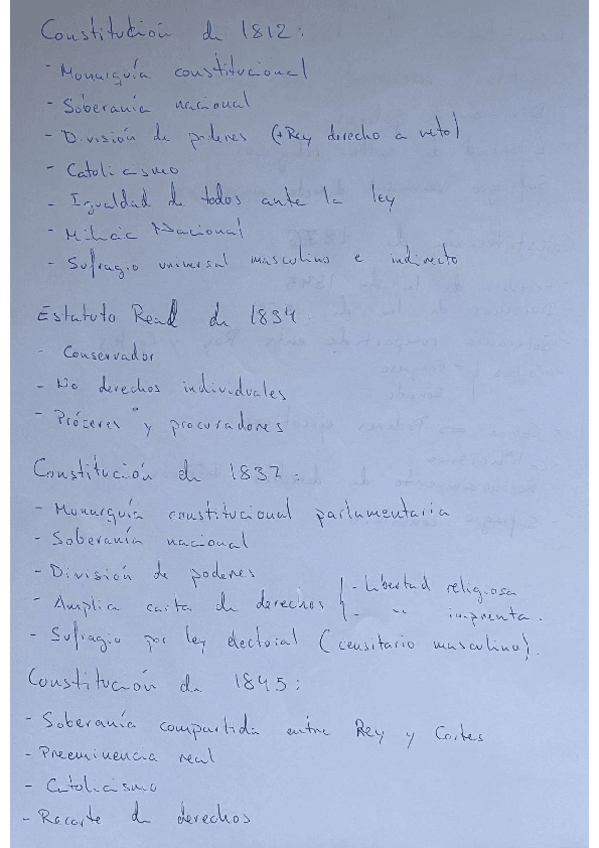 Constitución de 1812:
- Monarquía constitucional
- Soberanía nacional
- División de poderes (+Rey derecho a veto)
- Catolicismo
- Igualdad de todos ante la ley
- Milicia Nacional
- Sufragio universal masculino e indirecto
Estatuto Real de 1834
- Conservador
- No derechos individuales
- Próceres y procuradores
Constitución de 1837:
- Monarquía constitucional parlamentaria
- Soberanía nacional
- División de poderes
- Amplia carta de derechos
- Libertad religiosa
- " imprenta.
- Sufragio por ley electoral (censitario masculino).
Constitución de 1845:
- Soberanía compartida entre Rey y Cortes
- Preeminencia real
- Catolicismo
- Recorte de derechos